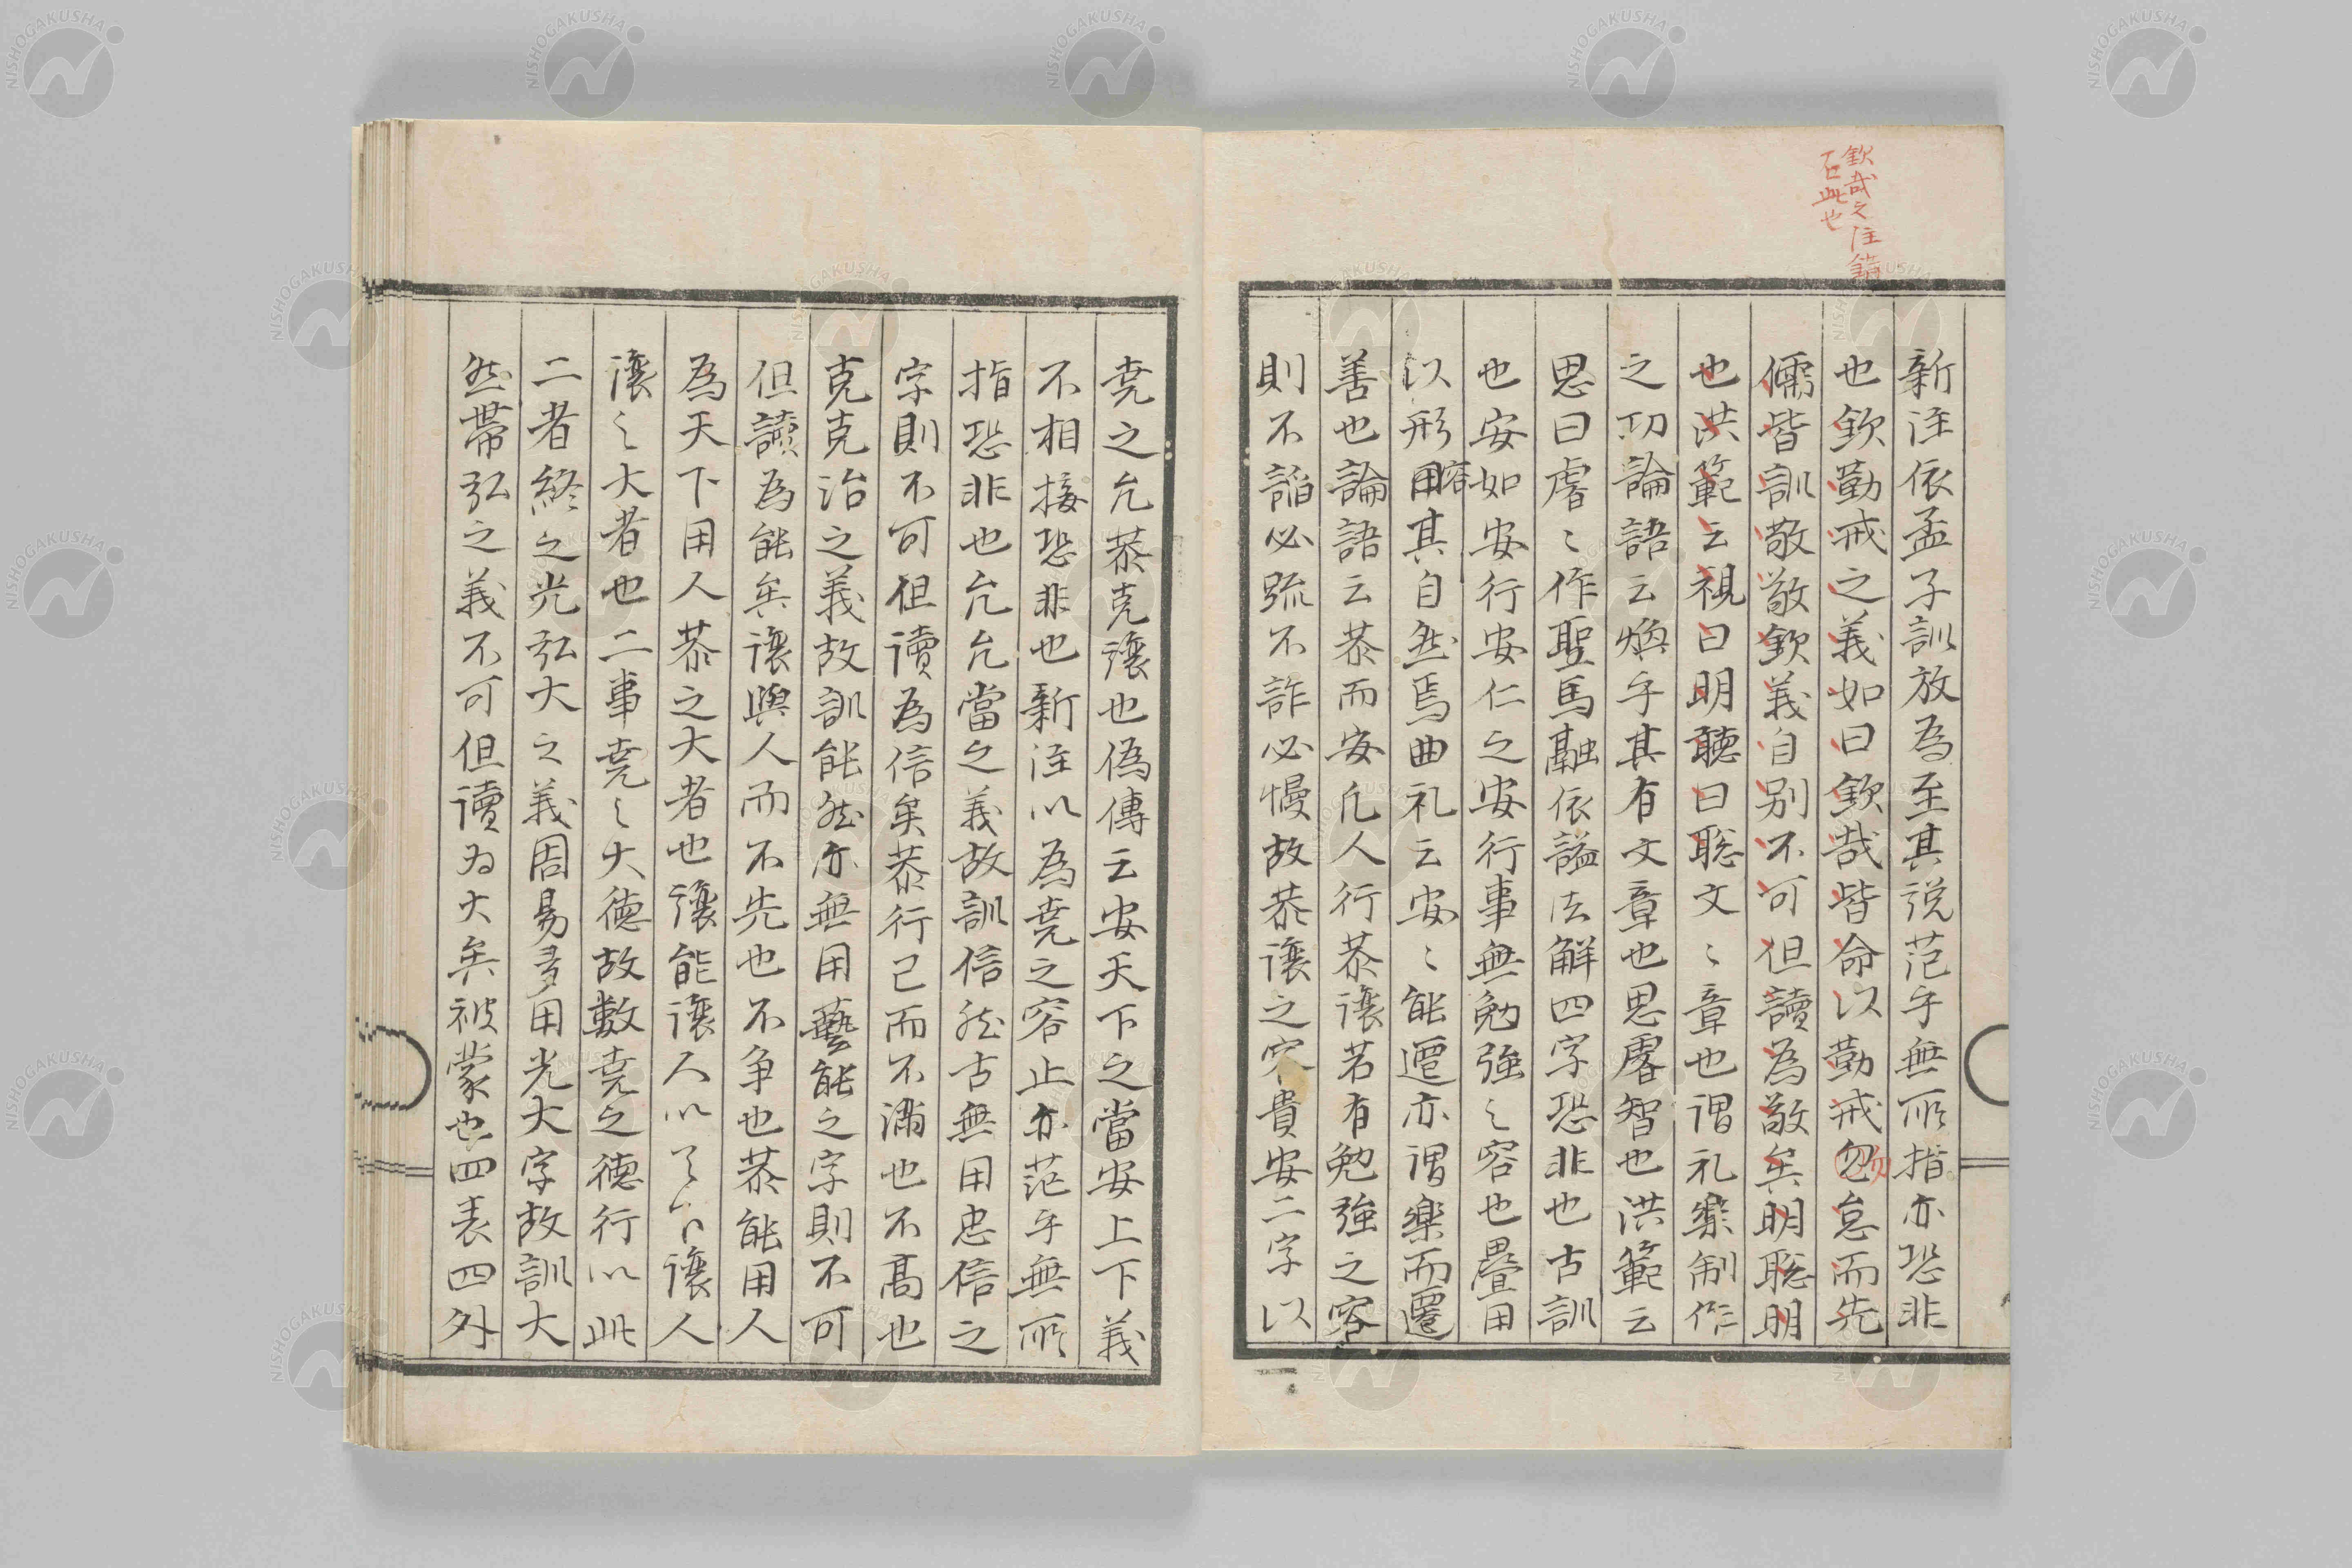 欽哉之注
石此也
新注依孟子訓放為至其説茫乎無所指亦恐非
也欽勤戒之義如曰欽哉皆命以勤戒勿怠而先
儒皆訓敬敬欽義自別不可但讀為敬矣明聡明
也洪範云視曰明聽曰聡文〻章也謂礼楽制作
之功論語云煥乎其有文章也思慮智也洪範云
思曰睿〻作聖馬融依謚法解四字恐非也古訓
也安如安行安仁之安行事無勉強之容也畳用
以形容其自然焉曲礼云安〻能遷亦謂楽而遷
善也論語云恭而安凡人行恭譲若有勉強之容
則不諂必疏不詐必慢故恭譲之容貴安二字以
尭之允恭克譲也偽傳云安天下之當安上下義
不相接恐非也新注以為尭之容止亦茫乎無所
指恐非也允允當之義故訓信然古無用忠信之
字則不可但讀為信矣恭行己而不滿也不髙也
克克治之義故訓能然亦無用藝能之字則不可
但讀為能矣譲與人而不先也不争也恭能用人
為天下用人恭之大者也譲能譲人以天下譲人
譲之大者也二事尭之大徳故數尭之徳行以此
二者終之光弘大之義周易多用光大字故訓大
然帯弘之義不可但讀為大矣被蒙也四表四外